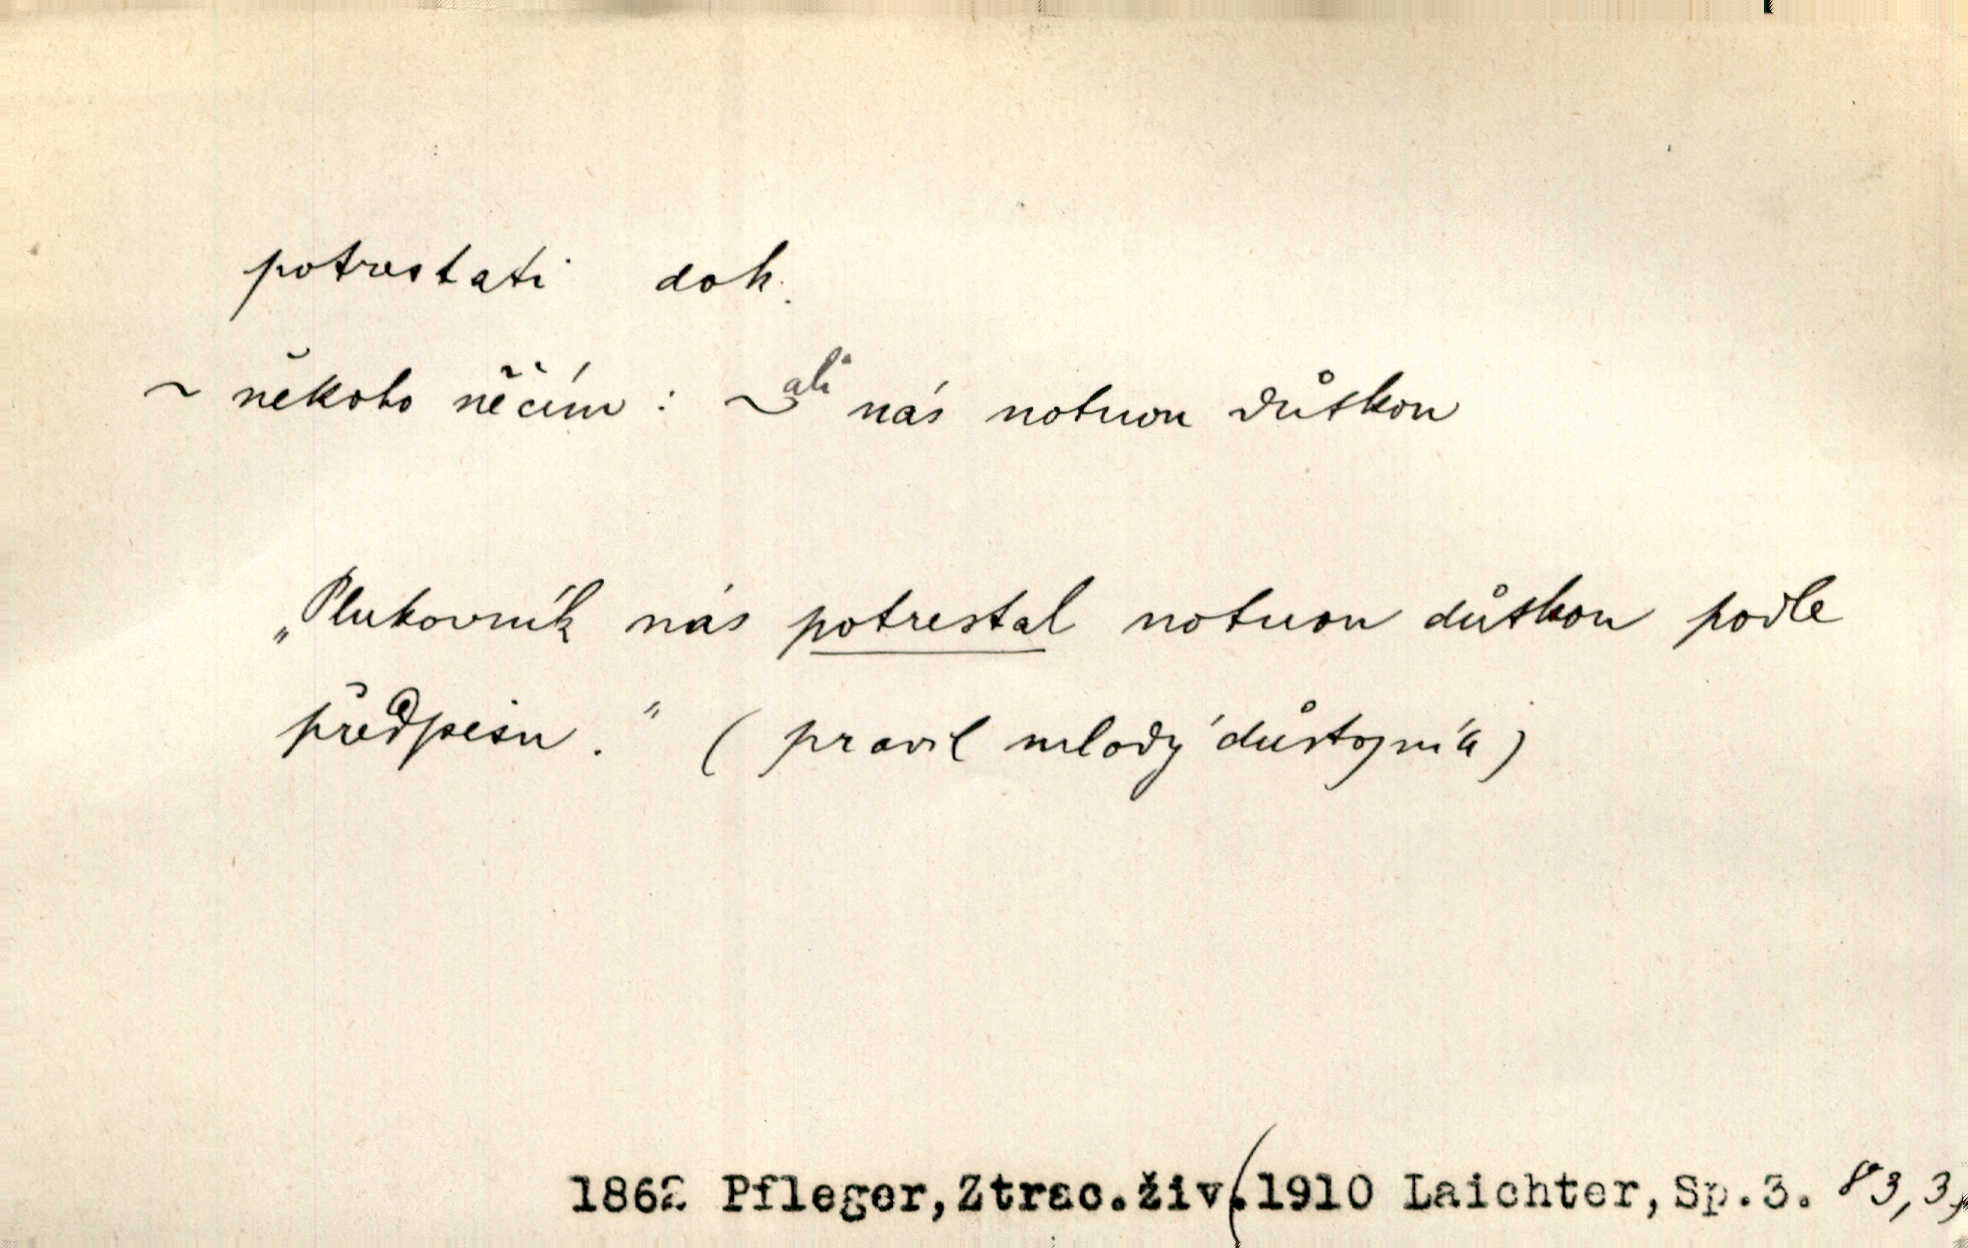 potrestati dok.
~ někoho něčím : ~ali nás notnou důtkou
„Plukovník nás potrestal notnou důtkou podle
předpisu." (pravil mladý důstojník)
1862 Pfleger, Ztrac.živ.(1910 Laichter, Sp.3. 83,3,